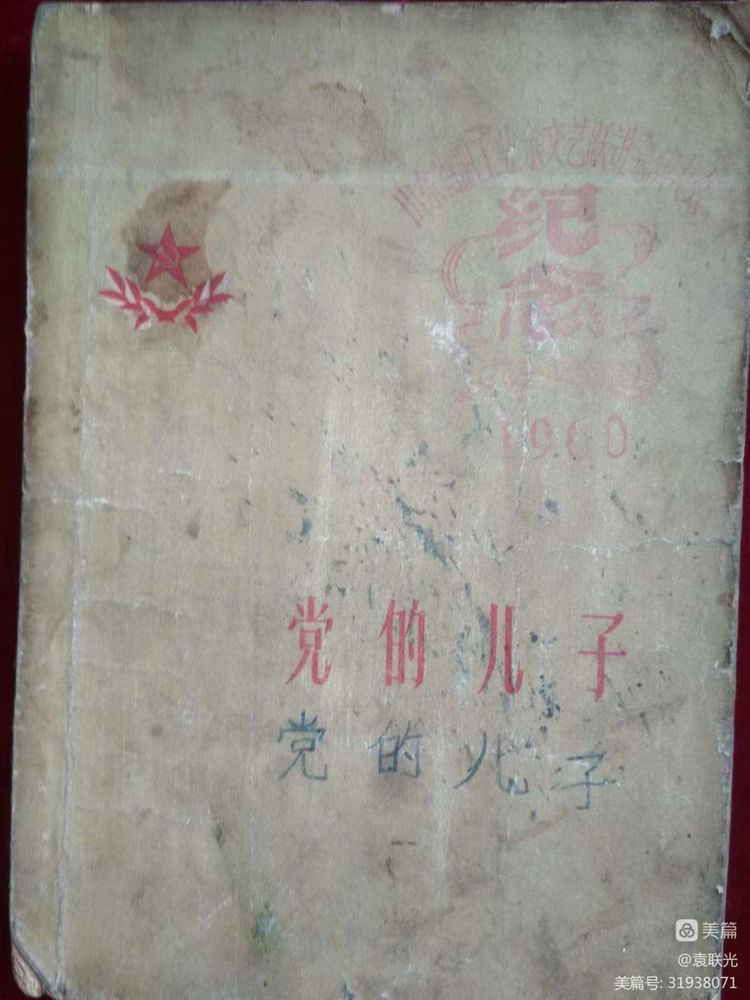 纪
念
1960
党的儿子
党的儿子
美篇
@袁联光
美篇号: 31938071